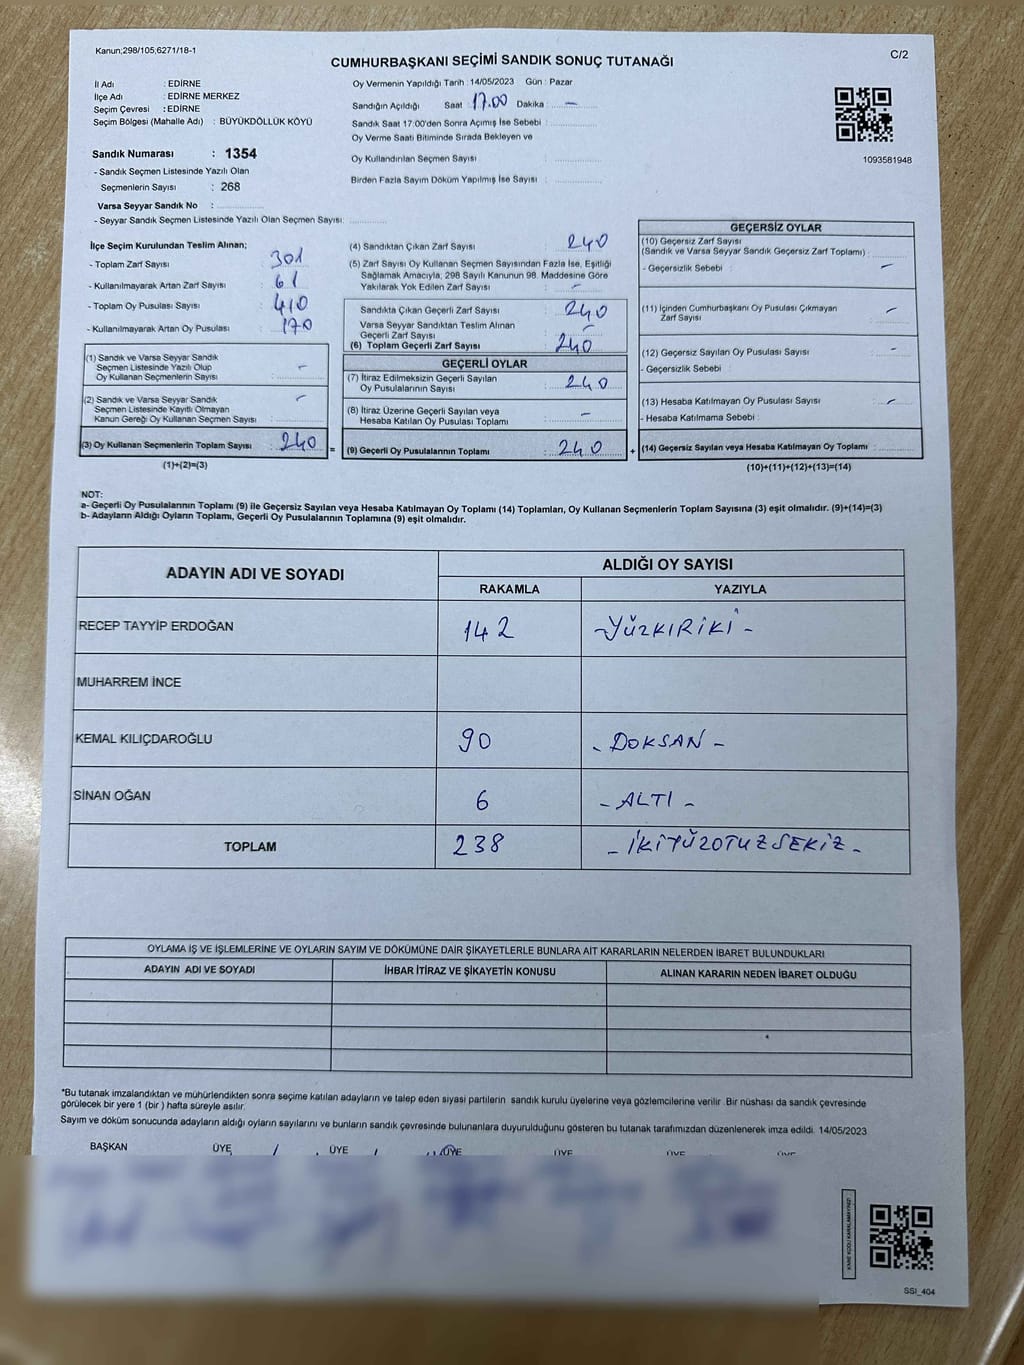 Kanun;298/105,6271/18-1
C/2
CUMHURBAŞKANI SEÇİMİ SANDIK SONUÇ TUTANAĞI
İl Adı : EDİRNE
İlçe Adı : EDİRNE MERKEZ
Seçim Çevresi : EDİRNE
Seçim Bölgesi (Mahalle Adı) : BÜYÜKDÖLLÜK KÖYÜ
Oy Vermenin Yapıldığı Tarih : 14/05/2023 Gün : Pazar
Sandığın Açıldığı Saat 17.00 Dakika : —
Sandık Saat 17:00'den Sonra Açımış İse Sebebi :
Oy Verme Saati Bitiminde Sırada Bekleyen ve
Oy Kullandırılan Seçmen Sayısı :
Birden Fazla Sayım Döküm Yapılmış İse Sayısı :
1093581948
Sandık Numarası : 1354
- Sandık Seçmen Listesinde Yazılı Olan
Seçmenlerin Sayısı : 268
Varsa Seyyar Sandık No :
- Seyyar Sandık Seçmen Listesinde Yazılı Olan Seçmen Sayısı:
İlçe Seçim Kurulundan Teslim Alınan;
- Toplam Zarf Sayısı : 301
- Kullanılmayarak Artan Zarf Sayısı : 61
- Toplam Oy Pusulası Sayısı : 410
- Kullanılmayarak Artan Oy Pusulası : 170
(1) Sandık ve Varsa Seyyar Sandık
Seçmen Listesinde Yazılı Olup
Oy Kullanan Seçmenlerin Sayısı : -
(2) Sandık ve Varsa Seyyar Sandık
Seçmen Listesinde Kayıtlı Olmayan
Kanun Gereği Oy Kullanan Seçmen Sayısı : -
(3) Oy Kullanan Seçmenlerin Toplam Sayısı : 240
(1)+(2)=(3)
=
(4) Sandıktan Çıkan Zarf Sayısı : 240
(5) Zarf Sayısı Oy Kullanan Seçmen Sayısından Fazla İse, Eşitliği
Sağlamak Amacıyla, 298 Sayılı Kanunun 98. Maddesine Göre
Yakılarak Yok Edilen Zarf Sayısı : -
Sandıkta Çıkan Geçerli Zarf Sayısı : 240
Varsa Seyyar Sandıktan Teslim Alınan
Geçerli Zarf Sayısı : -
(6) Toplam Geçerli Zarf Sayısı : 240
GEÇERLİ OYLAR
(7) İtiraz Edilmeksizin Geçerli Sayılan
Oy Pusulalarının Sayısı : 240
(8) İtiraz Üzerine Geçerli Sayılan veya
Hesaba Katılan Oy Pusulası Toplamı : -
(9) Geçerli Oy Pusulalarının Toplamı : 240
+
GEÇERSİZ OYLAR
(10) Geçersiz Zarf Sayısı
(Sandık ve Varsa Seyyar Sandık Geçersiz Zarf Toplamı) :
- Geçersizlik Sebebi : -
(11) İçinden Cumhurbaşkanı Oy Pusulası Çıkmayan
Zarf Sayısı : -
(12) Geçersiz Sayılan Oy Pusulası Sayısı : -
- Geçersizlik Sebebi :
(13) Hesaba Katılmayan Oy Pusulası Sayısı : -
- Hesaba Katılmama Sebebi :
(14) Geçersiz Sayılan veya Hesaba Katılmayan Oy Toplamı :
(10)+(11)+(12)+(13)=(14)
NOT:
a- Geçerli Oy Pusulalarının Toplamı (9) ile Geçersiz Sayılan veya Hesaba Katılmayan Oy Toplamı (14) Toplamları, Oy Kullanan Seçmenlerin Toplam Sayısına (3) eşit olmalıdır. (9)+(14)=(3)
b- Adayların Aldığı Oyların Toplamı, Geçerli Oy Pusulalarının Toplamına (9) eşit olmalıdır.
ADAYIN ADI VE SOYADI
ALDIĞI OY SAYISI
RAKAMLA YAZIYLA
RECEP TAYYİP ERDOĞAN 142 -YÜZKIRİKİ-
MUHARREM İNCE
KEMAL KILIÇDAROĞLU 90 - DOKSAN -
SİNAN OĞAN 6 - ALTI -
TOPLAM 238 - İKİYÜZOTUZSEKİZ -
OYLAMA İŞ VE İŞLEMLERİNE VE OYLARIN SAYIM VE DÖKÜMÜNE DAİR ŞİKAYETLERLE BUNLARA AİT KARARLARIN NELERDEN İBARET BULUNDUKLARI
ADAYIN ADI VE SOYADI İHBAR İTİRAZ VE ŞİKAYETİN KONUSU ALINAN KARARIN NEDEN İBARET OLDUĞU
*Bu tutanak imzalandıktan ve mühürlendikten sonra seçime katılan adayların ve talep eden siyasi partilerin sandık kurulu üyelerine veya gözlemcilerine verilir .Bir nüshası da sandık çevresinde
görülecek bir yere 1 (bir ) hafta süreyle asılır.
Sayım ve döküm sonucunda adayların aldığı oyların sayılarını ve bunların sandık çevresinde bulunanlara duyurulduğunu gösteren bu tutanak tarafımızdan düzenlenerek imza edildi. 14/05/2023
BAŞKAN ÜYE ÜYE ÜYE ÜYE ÜYE ÜYE
KARE KODU KARALAMAYINIZ!
SSI_404